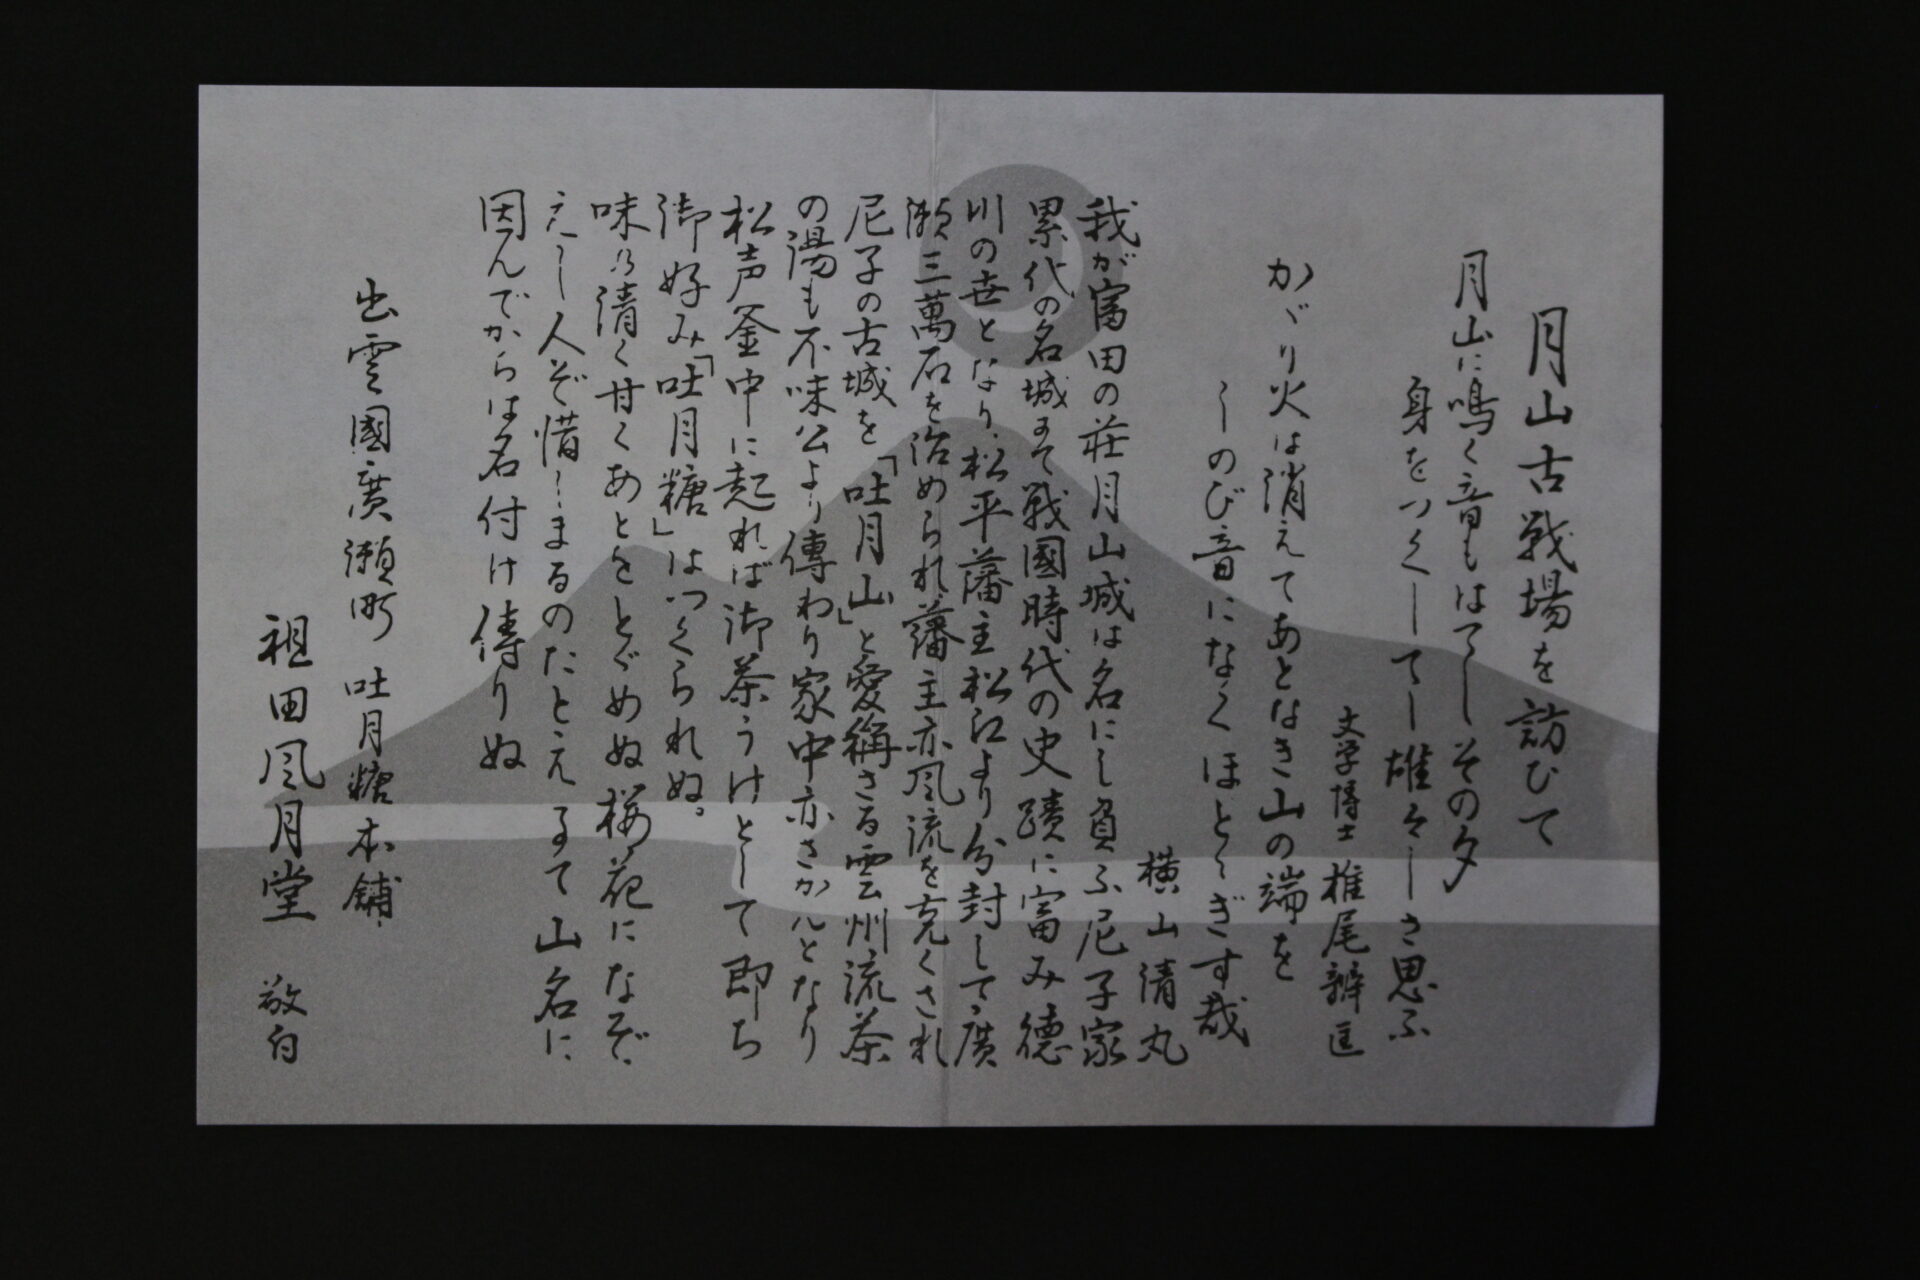 月山古戦場を訪ひて
月山に鳴く音もはてしその夕
身をつくしてし雄々しさ思ふ
文学博士 椎尾辨匡
かゞり火は消えてあとなき山の端を
しのび音になくほとゝぎす哉
横山清丸
我が富田の荘月山城は名にし負ふ尼子家
累代の名城にて戦國時代の史蹟に富み徳
川の世となり、松平藩主松江より分封して、廣
瀬三萬石を治められ、藩主亦風流を克くされ
尼子の古城を「吐月山」と愛稱さる雲州流茶
の湯も不味公より傳わり家中亦さかんとなり
松声釜中に起れば御茶うけとして即ち
御好み「吐月糖」はつくられぬ。
味乃清く甘くあとをとゞめぬ桜花になぞ
えし人ぞ惜しまるのたとえるて山名に
因んでからは名付け侍りぬ
出雲國廣瀬町 吐月糖本舗
祖田風月堂 敬白